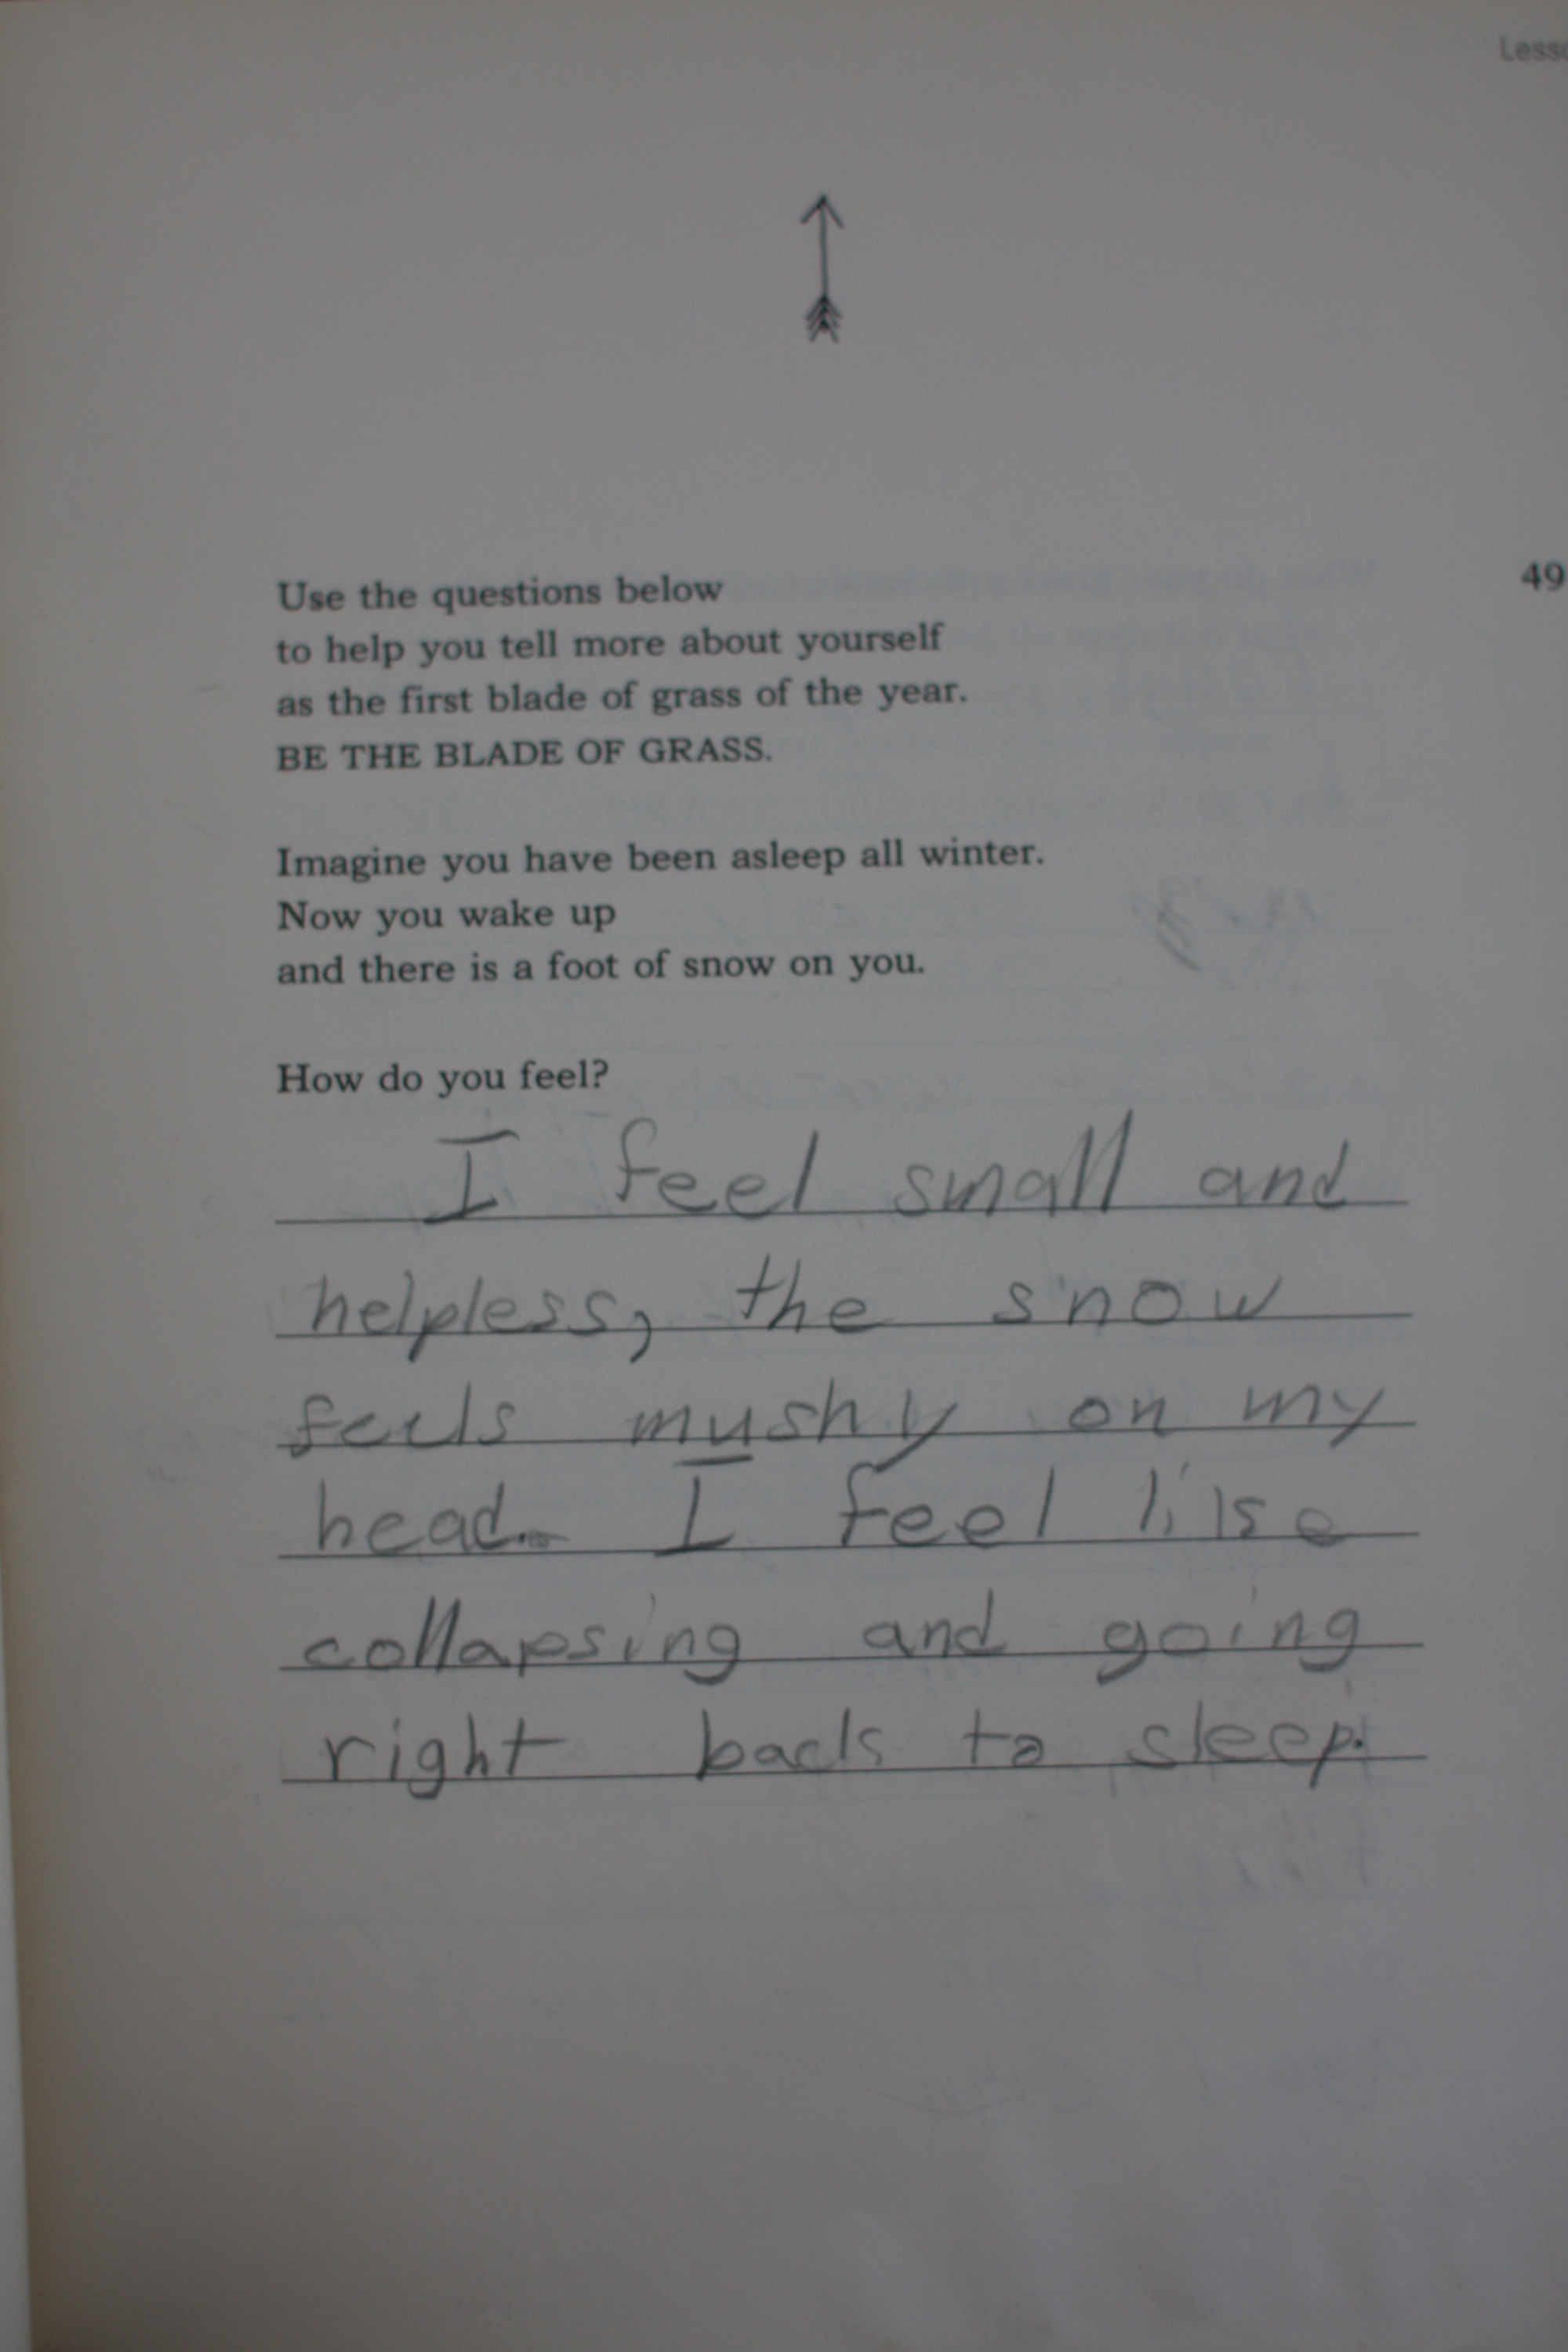 Use the questions below
to help you tell more about yourself
as the first blade of grass of the year.
BE THE BLADE OF GRASS.
49
Imagine you have been asleep all winter.
Now you wake up
and there is a foot of snow on you.
How do you feel?
I feel small and
helpless, the snow
feels mushy on my
head. I feel like
collapsing and going
right back to sleep.